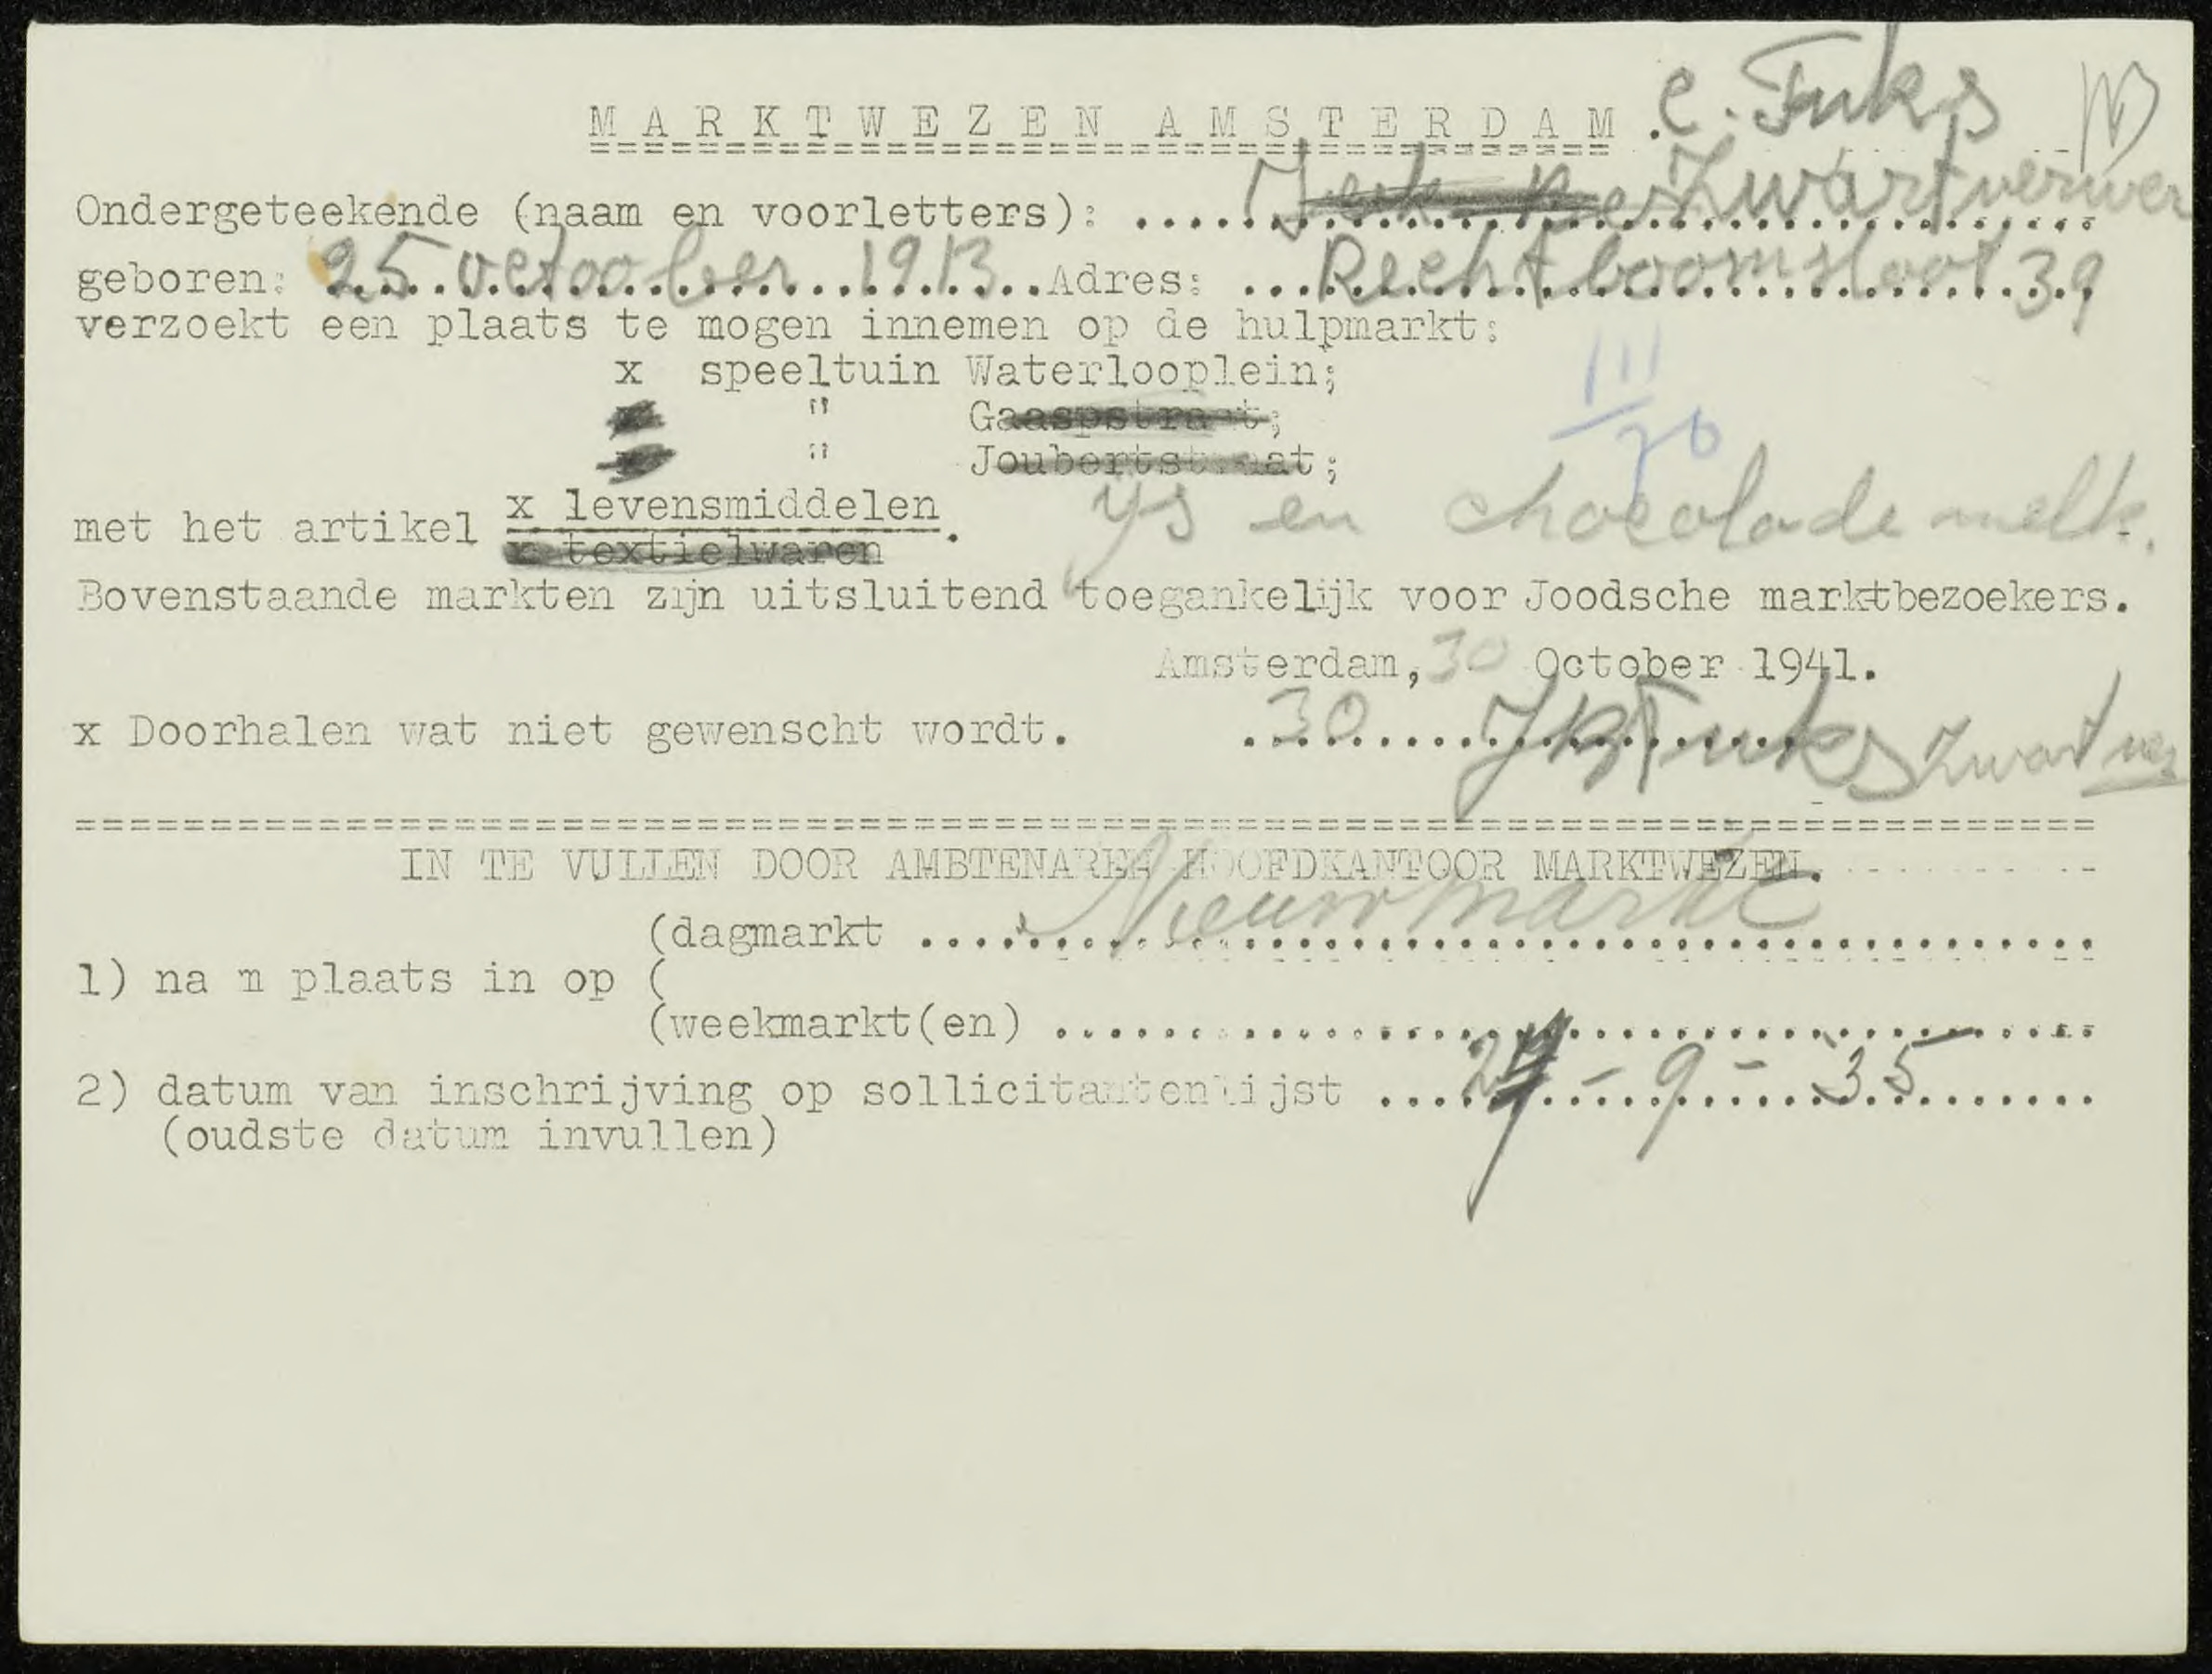 MARKTWEZEN AMSTERDAM. C. Fuks
Ondergeteekende (naam en voorletters): Zwartverwer
geboren: 25 october 1913 Adres: Rechtboomsloot 39
verzoekt een plaats te mogen innemen op de hulpmarkt:
x speeltuin Waterlooplein;
x " Gaaspstraat;
x " Joubertstraat;
III/76
met het artikel x levensmiddelen. ys en chocolade melk.
x textielwaren
Bovenstaande markten zijn uitsluitend toegankelijk voor Joodsche marktbezoekers.
Amsterdam, 30 October 1941.
x Doorhalen wat niet gewenscht wordt. 30 Fuks Zwartver
IN TE VULLEN DOOR AMBTENAREN HOOFDKANTOOR MARKTWEZEN.
(dagmarkt Nieuwmarkt
1) na m plaats in op (
(weekmarkt(en)
2) datum van inschrijving op sollicitantenlijst 24-9-'35
(oudste datum invullen)